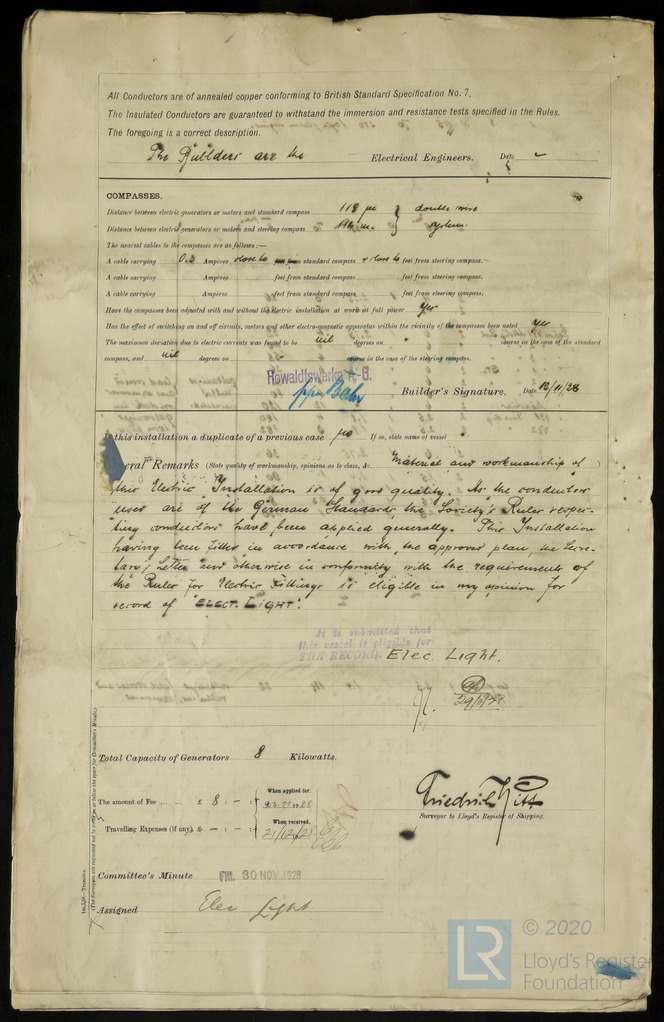 All Conductors are of annealed copper conforming to British Standard Specification No. 7.
The Insulated Conductors are guaranteed to withstand the immersion and resistance tests specified in the Rules.
The foregoing is a correct description.
The Builders are the Electrical Engineers. Date
COMPASSES.
Distance between electric generators or motors and standard compass 118 double wire
Distance between electric generators or motors and steering compass system
The nearest cables to the compasses are as follows:—
A cable carrying 0.3 Ampères close to standard compass & close to feet from steering compass.
A cable carrying Ampères feet from standard compass feet from steering compass.
A cable carrying Ampères feet from standard compass feet from steering compass.
Have the compasses been adjusted with and without the electric installation at work at full power yes
Has the effect of switching on and off circuits, motors and other electro-magnetic apparatus within the vicinity of the compasses been noted yes
The maximum deviation due to electric currents was found to be nil degrees on course in the case of the standard
compass, and nil degrees on course in the case of the steering compass.
Howaldtswerke A-G.
ppa Bahr Builder's Signature. Date 12/11/28
Is this installation a duplicate of a previous case no If so, state name of vessel
General Remarks (State quality of workmanship, opinions as to class, &c. Material and workmanship of
this Electric Installation is of good quality. As the conductors
used are of the German Standards the Society's Rules respec-
ting conductors have been applied generally. This Installation
having been fitted in accordance with the approved plan, the Secre-
tary's Letter and otherwise in conformity with the requirements of
the Rules for Electric Fittings is eligible in my opinion for
record of "ELECT. LIGHT".
It is submitted that
this vessel is eligible for
THE RECORD. Elec. Light.
29/11/28
Total Capacity of Generators 8 Kilowatts.
The amount of Fee ... ... £ 8 : - : When applied for,
When received,
Travelling Expenses (if any) £ - : - : 21/12/28
Friedrich
Surveyor to Lloyd's Register of Shipping.
Committee's Minute FRI. 30 NOV 1928
Assigned Elec Light
(The Surveyors are requested not to write on or below the space for Committee's Minute.)
© 2020
LR
Lloyd's Register
Foundation